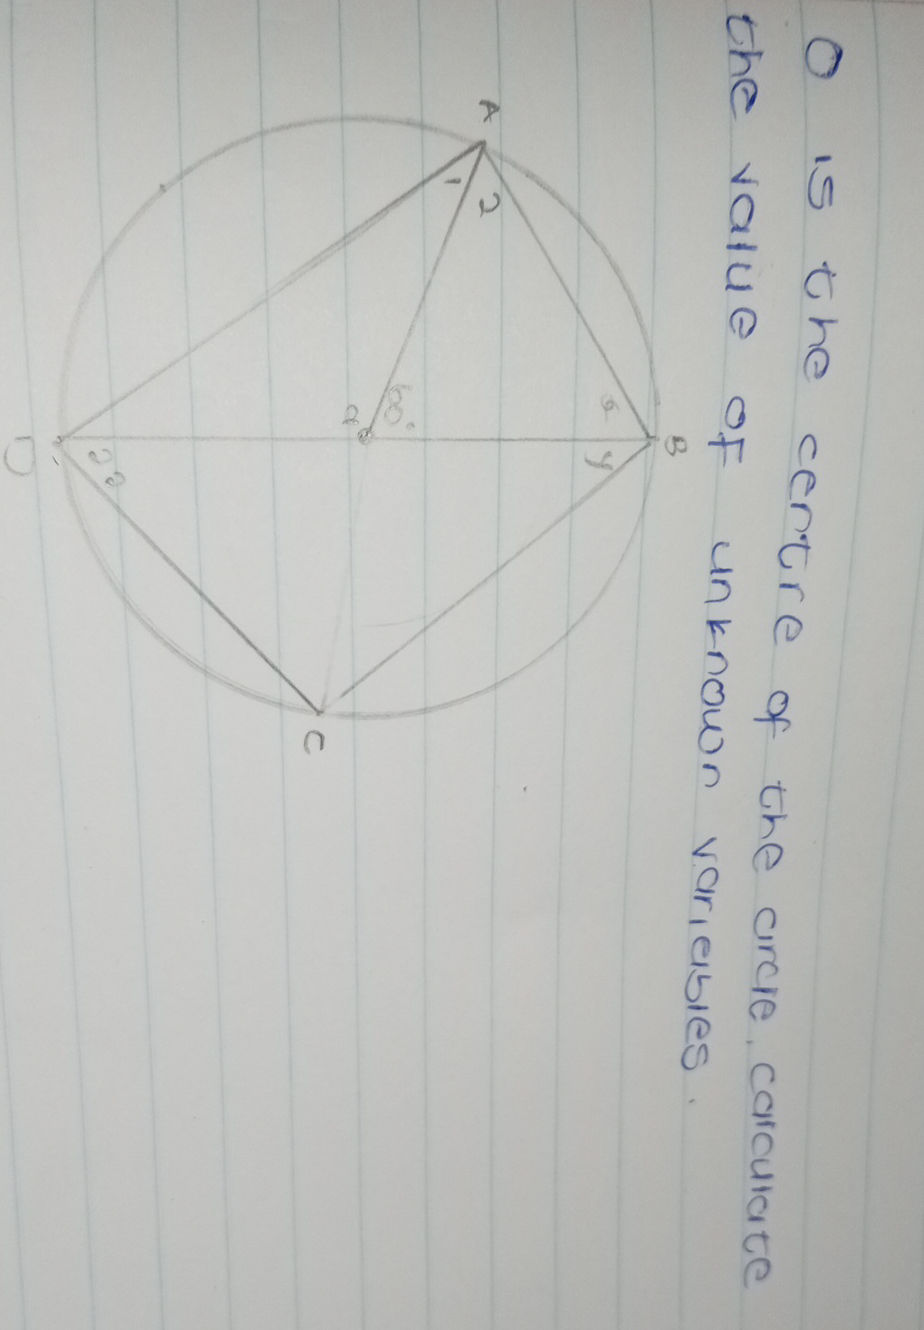 O is the centre of the circle, calculate
the value of unknown variables.
A
1
2
B
y
D
C